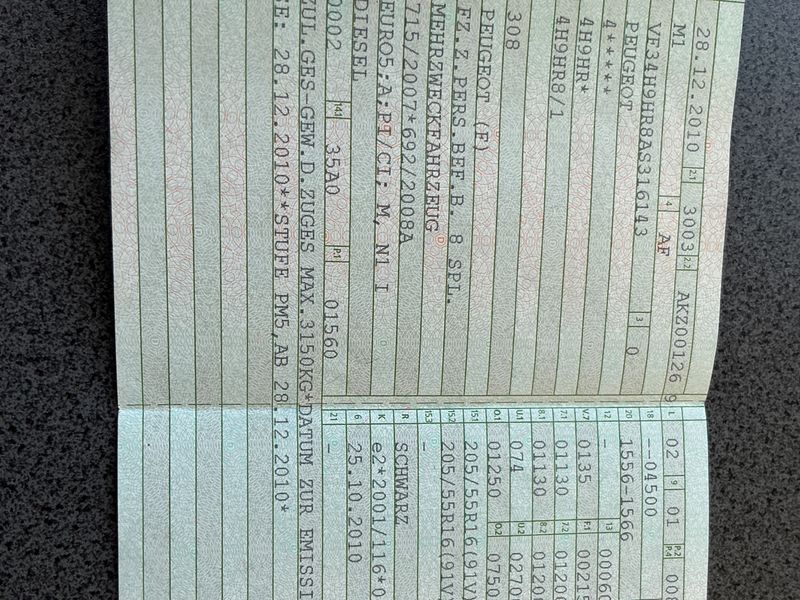 28.12.2010 2.1 3003 2.2 AKZ00126 9
M1 4 AF
VF34H9HR8AS316143 3 0
PEUGEOT
4*****
4H9HR*
4H9HR8/1
308
PEUGEOT (F)
FZ.Z.PERS.BEF.B. 8 SPL.
MEHRZWECKFAHRZEUG
715/2007*692/2008A
EURO5;A;PI/CI; M, N1 I
DIESEL
0002 14.1 35A0 P.1 01560
ZUL.GES-GEW.D.ZUGES MAX.3150KG*DATUM ZUR EMISSI
SE: 28.12.2010**STUFE PM5,AB 28.12.2010*
L 02 9 01 P.2 P.4
18 --04500
20 1556-1566
12 - 13
V.7 0135 F.1
7.1 01130 7.2
8.1 01130 8.2
U.1 074 U.2
O.1 01250 O.2
15.1 205/55R16(91V
15.2 205/55R16(91V
15.3 -
R SCHWARZ
K e2*2001/116*0
6 25.10.2010
21 -